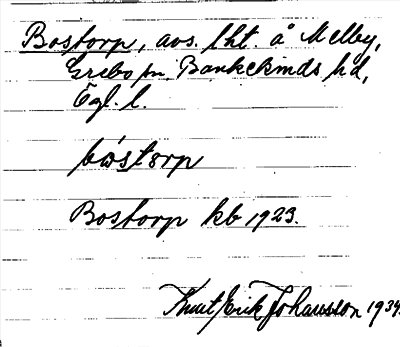 Bostorp, avs. lht. å Melby,
Grebo sn, Bankekinds hd,
Ögl. l.
bω´storp
Bostorp kb 1923.
Knut Erik Johansson 1934.